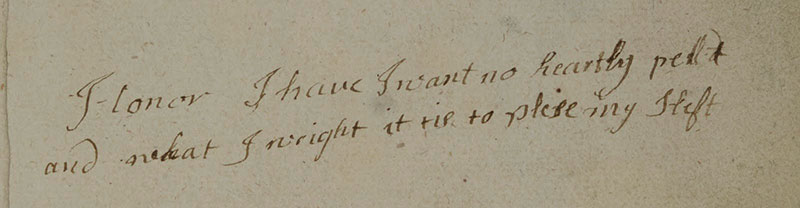 Honor I have I want no heartly pelt
and what I wright it tis to plese my sleft